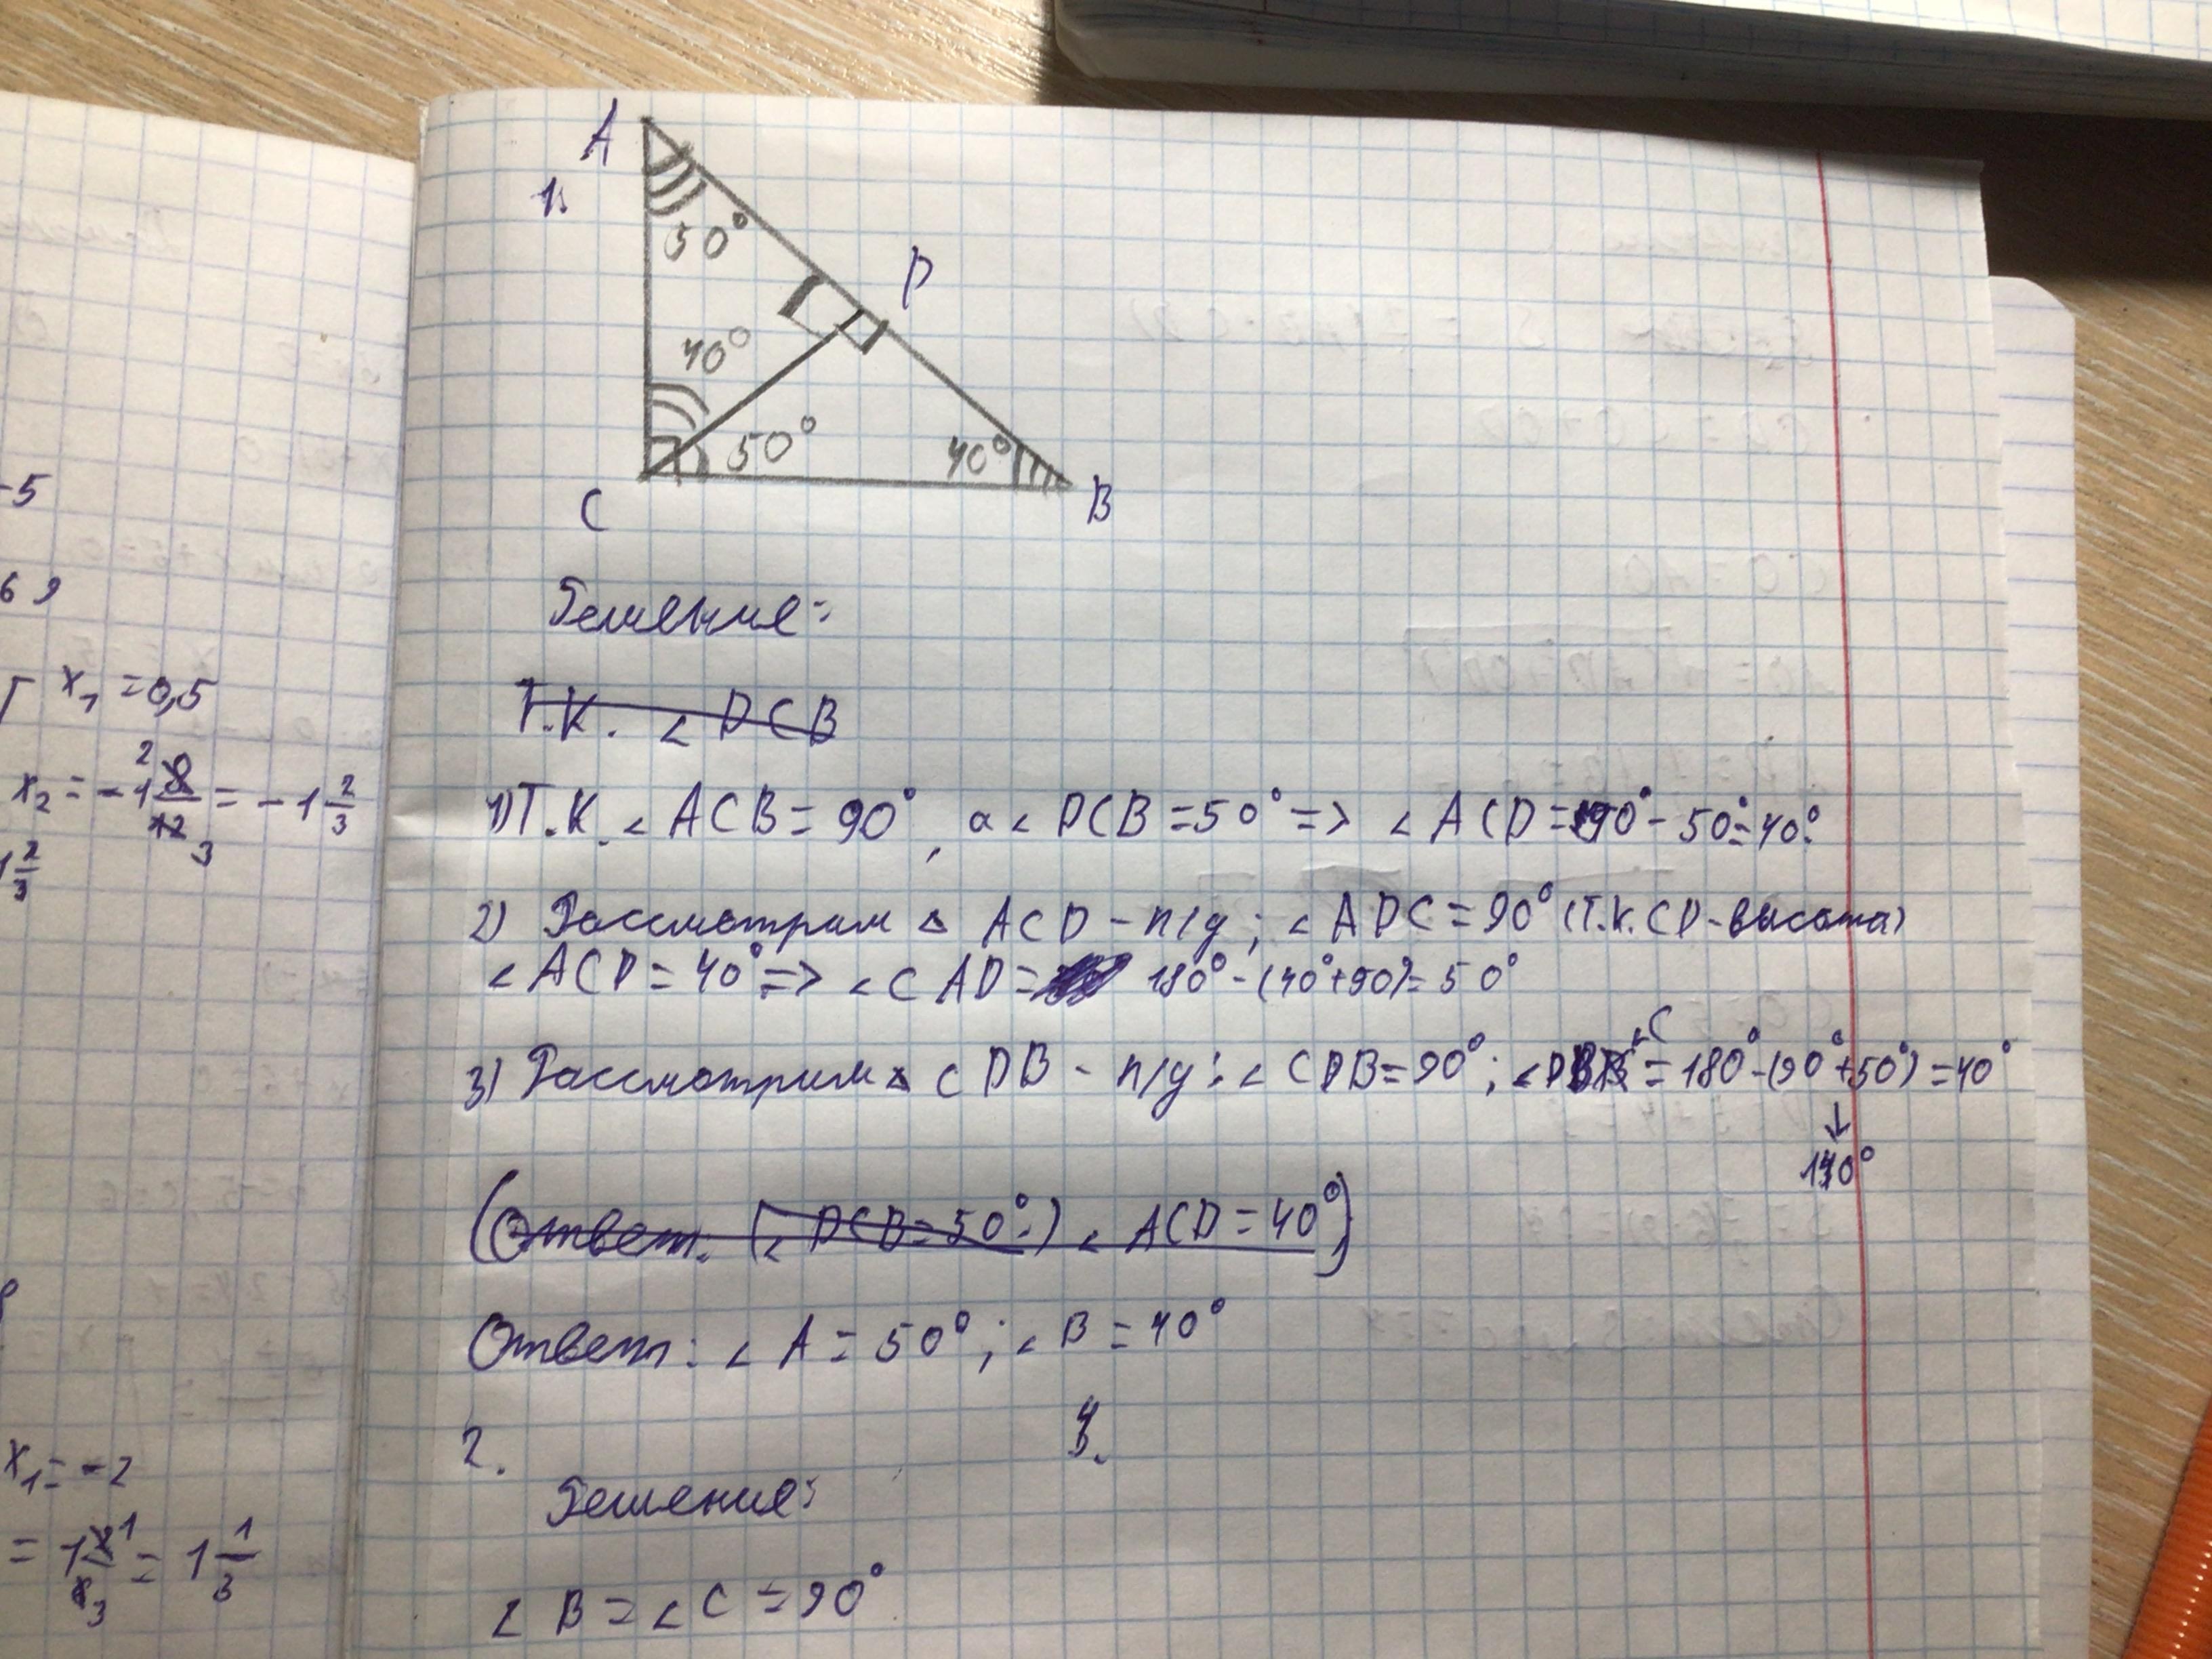 -5
69
x₁ = 0,5
x₂ = - 1 8/12 = - 1 2/3
1 2/3
x₁ = - 2
= 1 1/3
A
1.
50°
D
40°
50°
40°
C
B
Решение:
Т.К. ∠ DCB
1) Т.К. ∠ ACB = 90°, а ∠ DCB = 50° => ∠ ACD = 90° - 50° = 40°.
2) Рассмотрим △ ACD - п/у; ∠ ADC = 90° (Т.К. CD - высота)
∠ ACD = 40° => ∠ CAD = 180° - (40° + 90°) = 50°
3) Рассмотрим △ CDB - п/у: ∠ CDB = 90°; ∠ DBC = 180° - (90° + 50°) = 40°
↓
140°
(Ответ: (∠ DCB = 50°.) ∠ ACD = 40°)
Ответ: ∠ A = 50°; ∠ B = 40°
2.
Решение:
∠ B = ∠ C = 90°